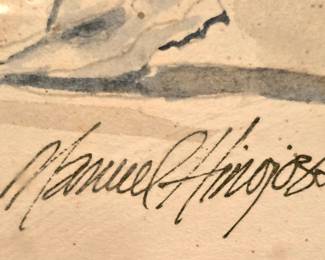 Manuel Hinojosa